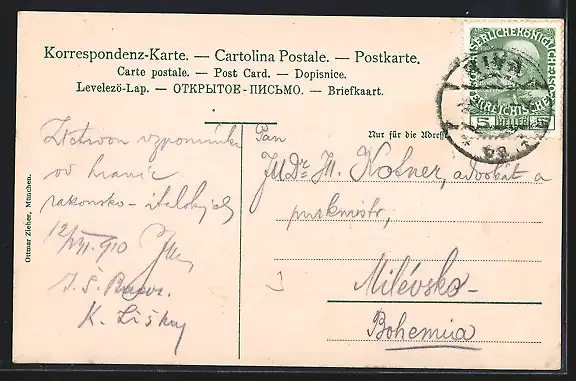 Korrespondenz-Karte. — Cartolina Postale. — Postkarte.
Carte postale. — Post Card. — Dopisnice.
Levelező-Lap. — ОТКРЫТОЕ-ПИСЬМО. — Briefkaart.
KAISERLICHEKÖNIGLICHE
RIVA
5 HELLER 5
Nur für die Adresse
vzpomínku
od hranic
rakousko-italských
12/VII. 910
K. Liška
Pan
JUDr. M. Kotner, advokát a
purkmistr,
Milévsko-
Bohemia
Ottmar Zieher, München.